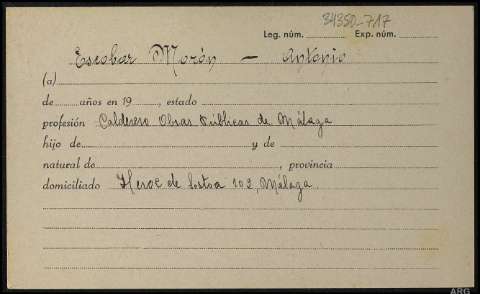 34350-717
Leg. núm. Exp. núm.
Escobar Morón - Antonio
(a)
de años en 19 , estado
profesión Caldedero Obras Públicas de Málaga
hijo de y de
natural de , provincia
domiciliado Heroe de Sostoa 102, Málaga.
ARG